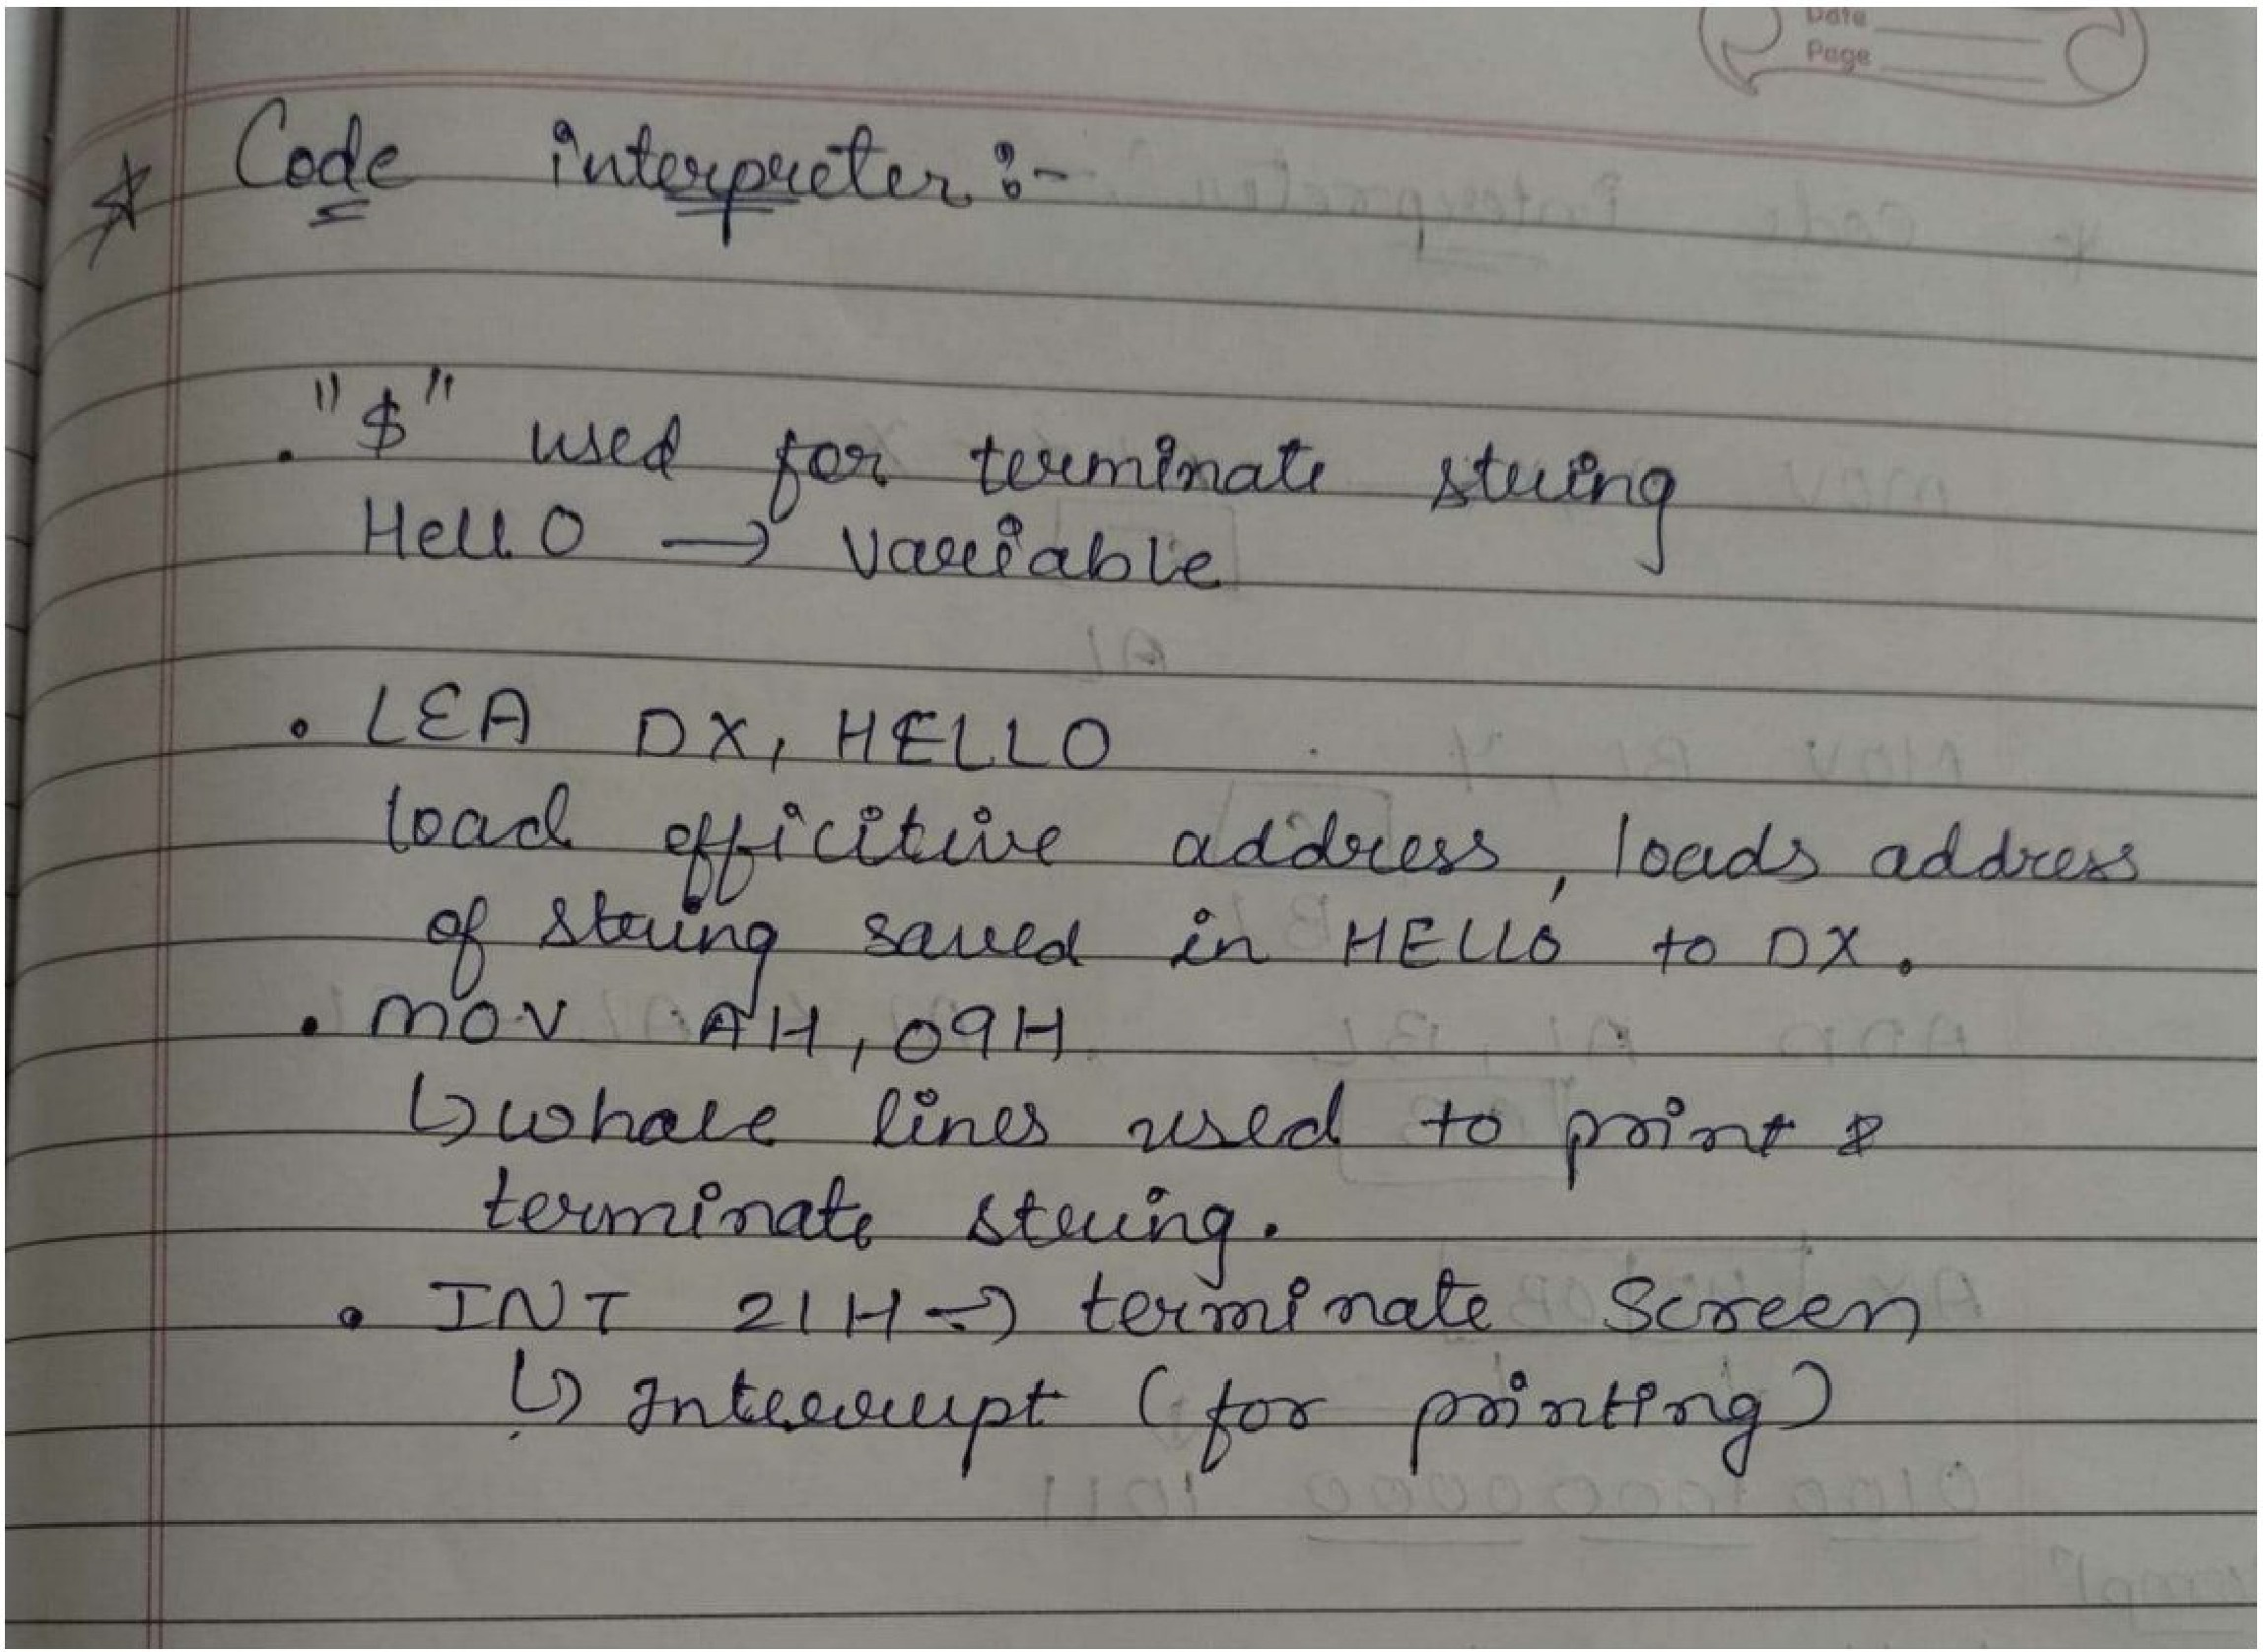 Date
Page
☆ Code interpreter :-
. "$" used for terminate string
Hello → Variable
• LEA DX, HELLO
load efficitive address, loads address
of string saved in HELLO to DX.
• MOV AH, 09H
↳ whole lines used to print &
terminate string.
• INT 21H → terminate Screen
↳ Interrupt (for printing)